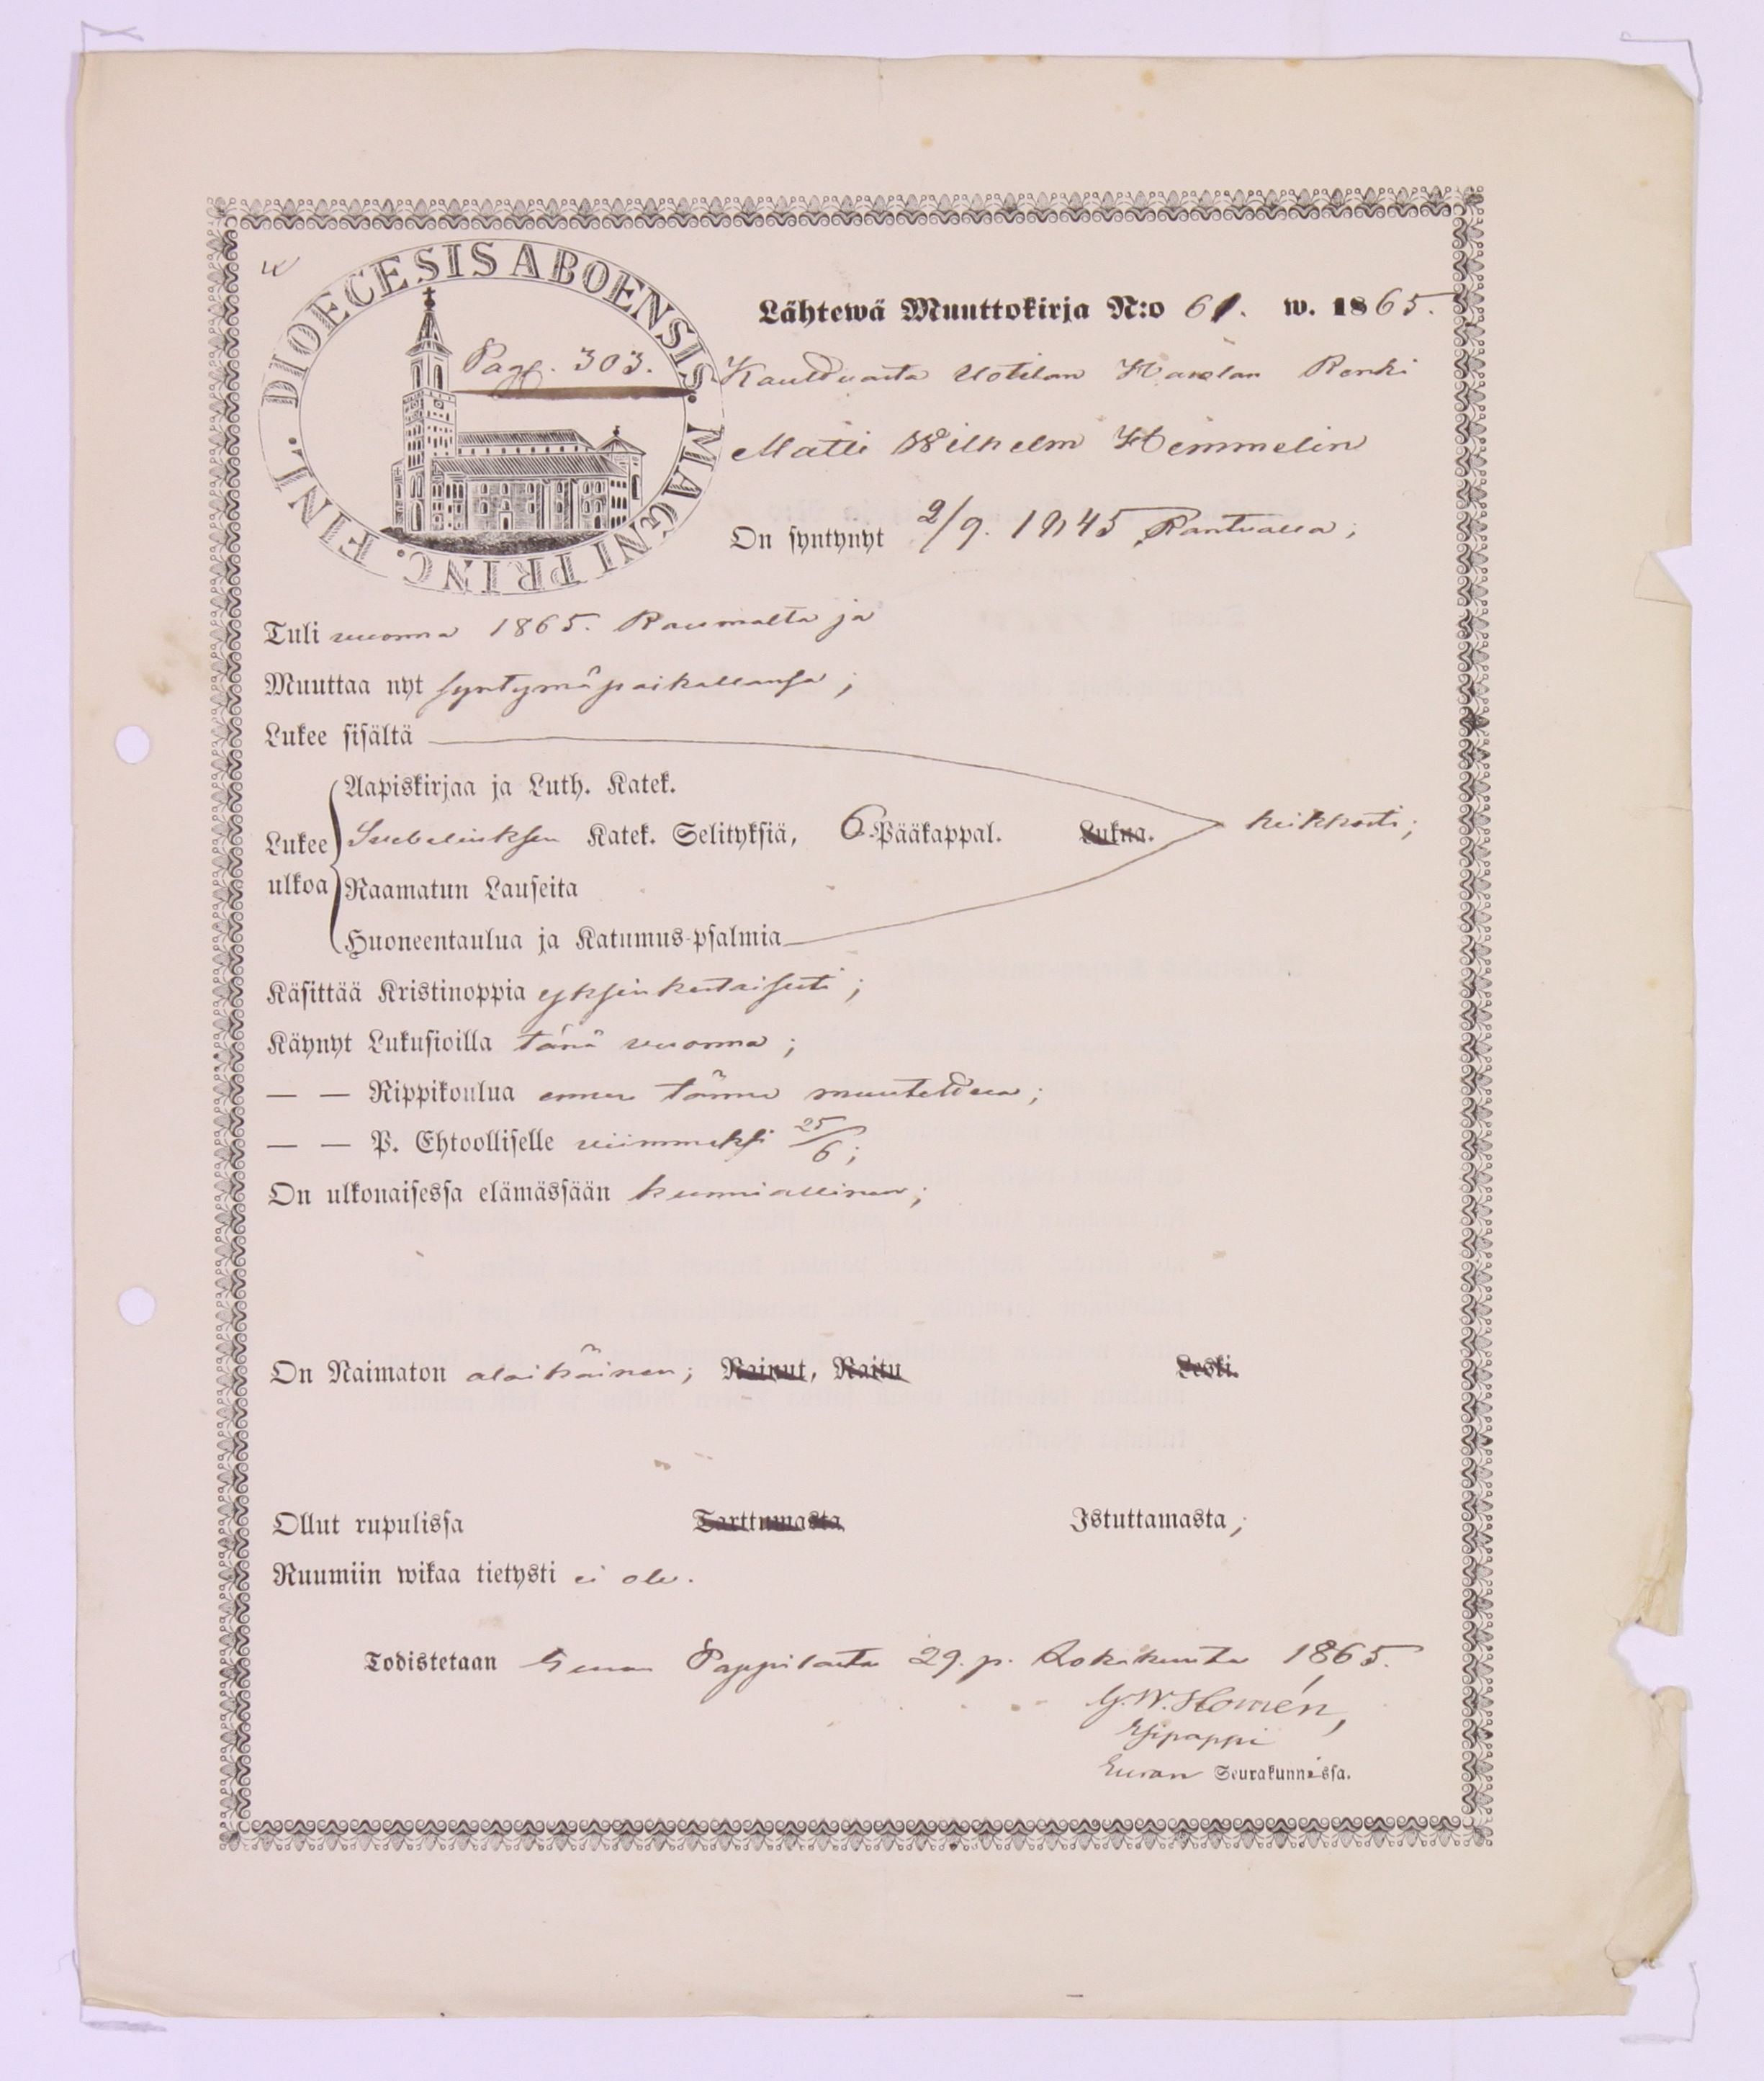 DIOECESIS ABOENSIS. MAGNI PRINC. FINL.
Pag. 303.
Lähtewä Muuttokirja N:o 61. w. 1865.
Kauttuasta Uotilan Renki
Matti Wilhelm Hemmelin
On syntynyt 2/9. 1845
Tuli vuonna 1865. Raumalta ja
Muuttaa nyt syntymäpaikallensa;
Lukee sisältä
Aapiskirjaa ja Luth. Katek.
Lukee ulkoa Svebeliuksen Katek. Selityksiä, 6 Pääkappal. Lukua. heikkosti;
Raamatun Lauseita
Huoneentaulua ja Katumus-psalmia
Käsittää Kristinoppia yksinkertaisesti;
Käynyt Lukusioilla tänä vuonna;
— — Rippikoulua ennen tänne muutettua;
— — P. Ehtoolliselle viimmeksi 25/6;
On ulkonaisessa elämässään kunniallinen;
On Naimaton alaikäinen; Nainut, Naitu Leski.
Ollut rupulissa Tarttumasta Istuttamasta;
Ruumiin wikaa tietysti ei ole.
Todistetaan Euran Pappilasta 29. p. Lokakuuta 1865.
G. W. Homén,
Esipappi
Euran Seurakunnassa.